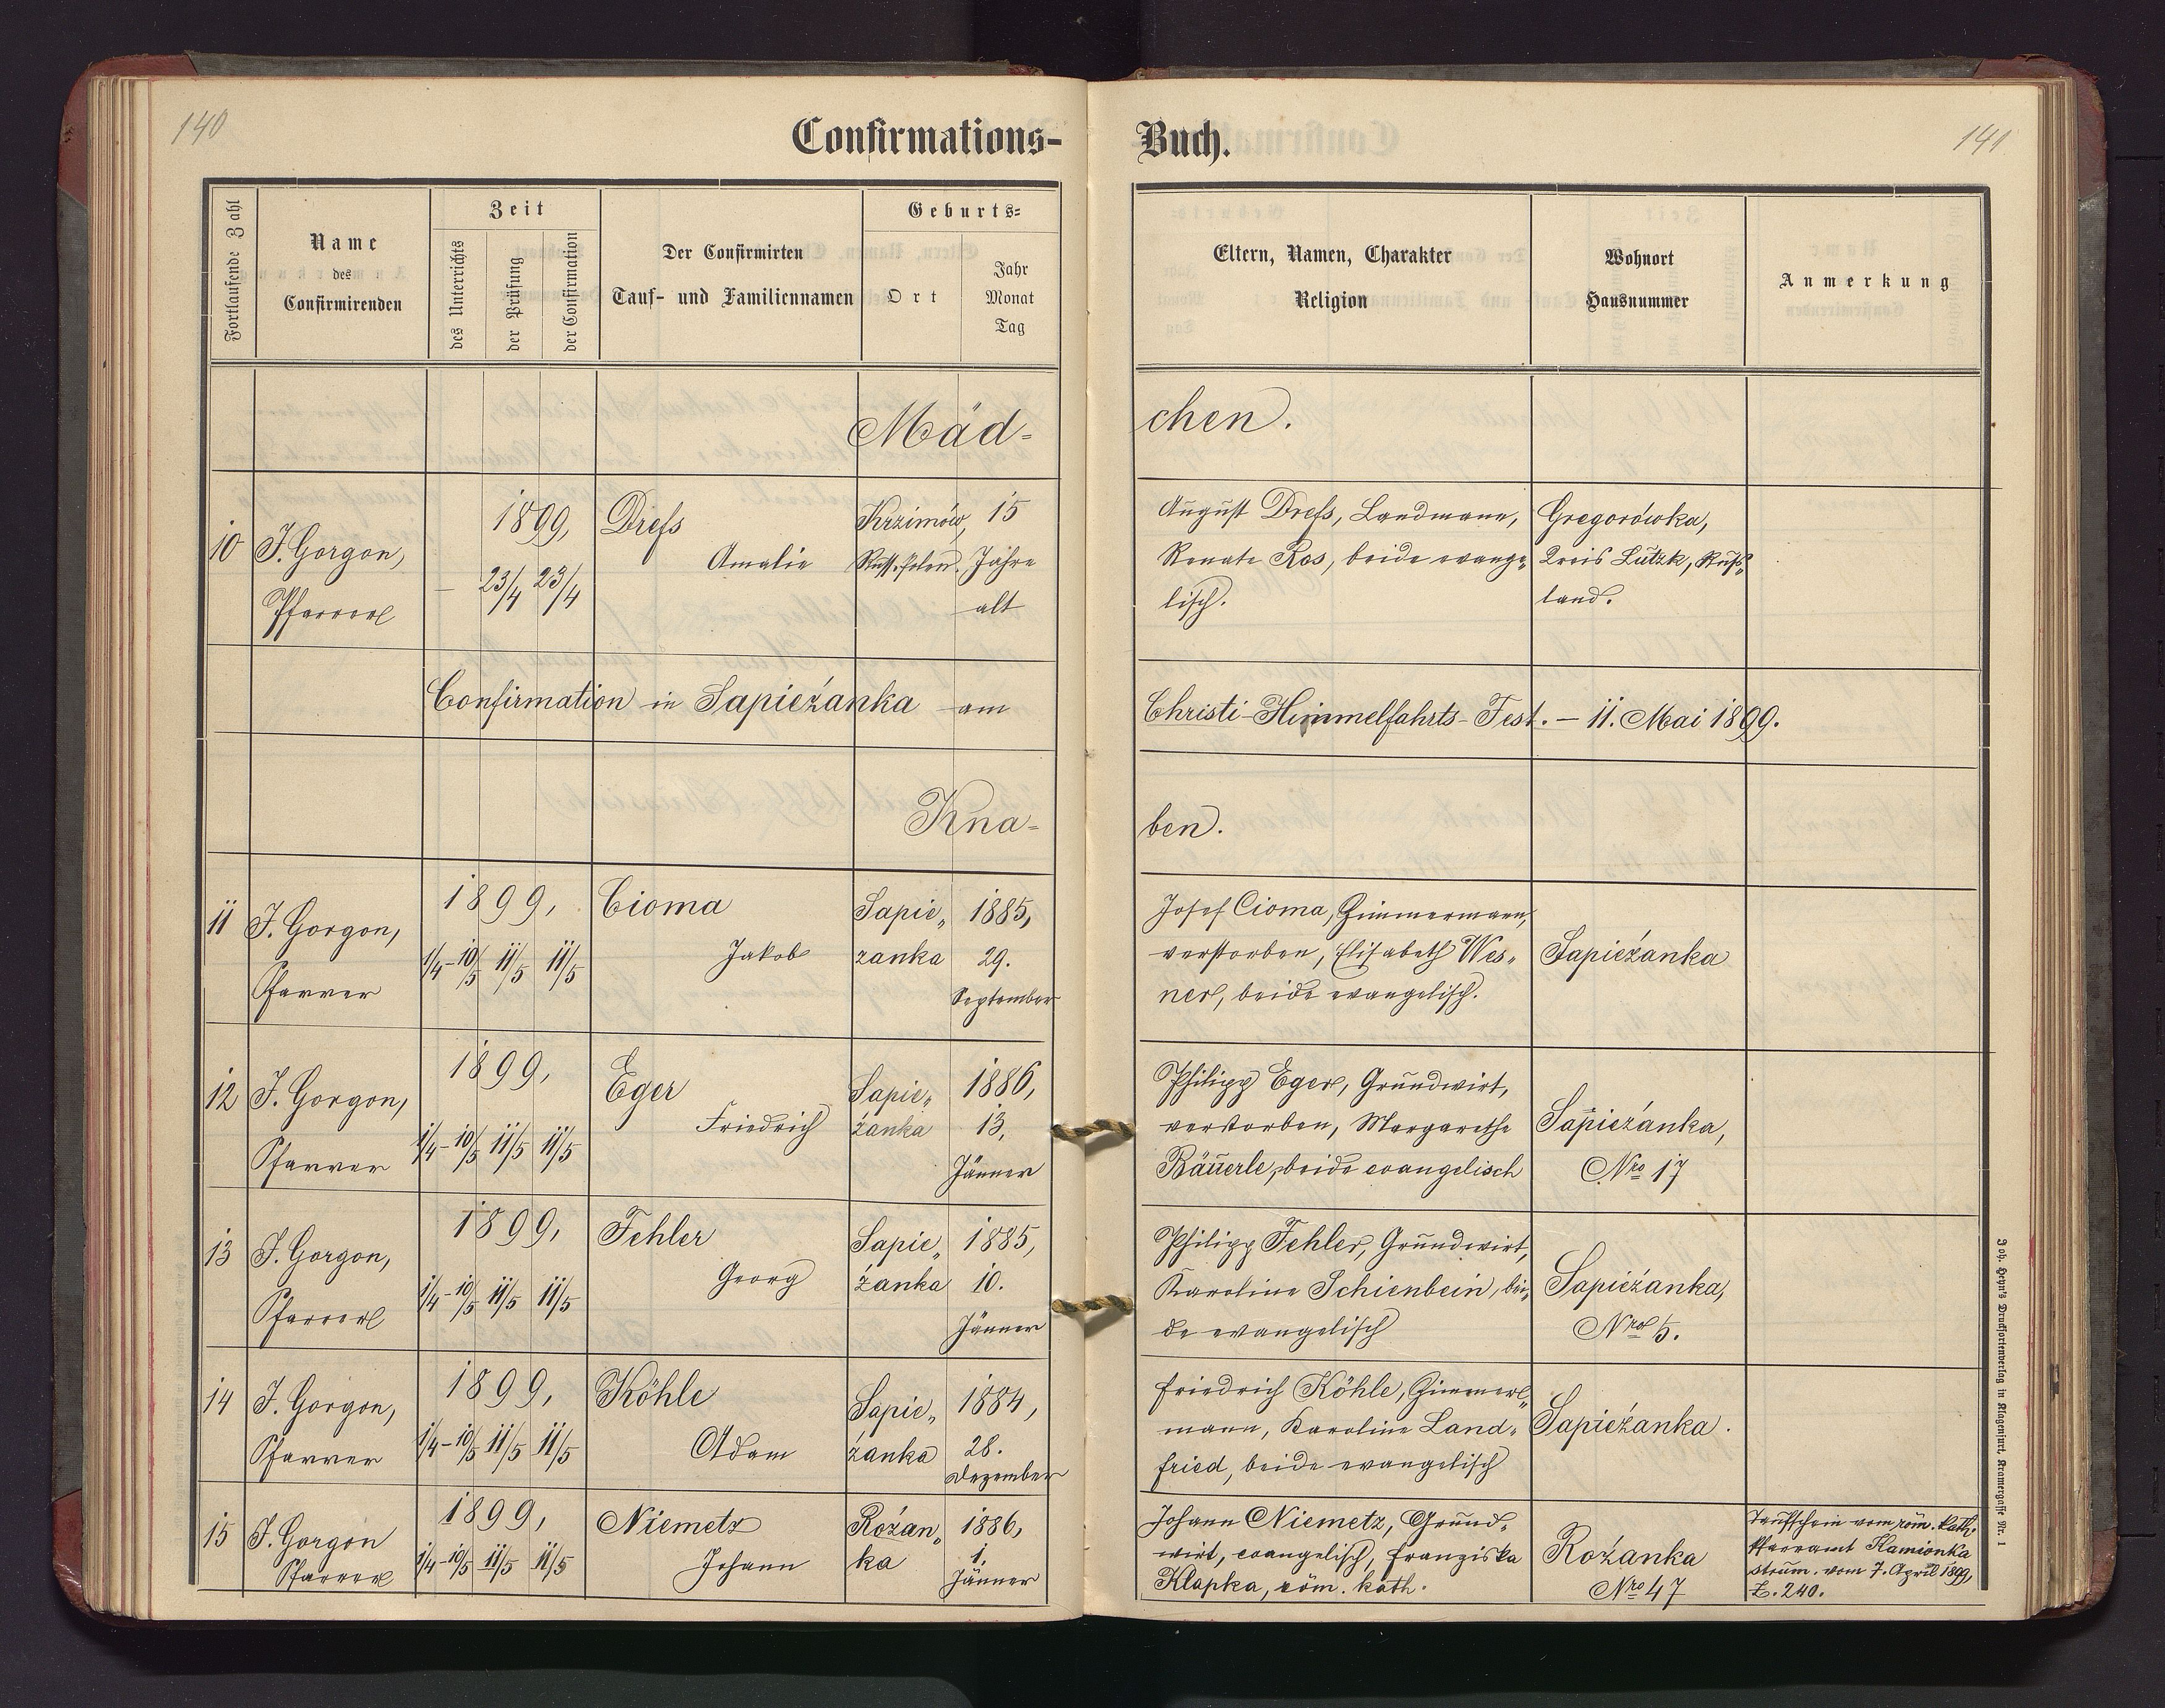 140
Confirmations-
Buch.
141
Fortlaufende Zahl
Name
des
Confirmirenden
Zeit
des Unterrichts
der Prüfung
der Confirmation
Der Confirmirten
Tauf- und Familiennamen
Geburts-
Ort
Jahr
Monat
Tag
Eltern, Namen, Charakter
Religion
Wohnort
Hausnummer
Anmerkung
Mäd-
chen.
10
J. Gorgon,
Pfarrer
1899,
— 23/4 23/4
Dreſs
Amalie
Krzimów,
Russ. Polen.
15
Jahre
alt
August Dreſs, Landmann,
Renate Ros, beide evange-
lisch.
Gregorówka,
Kreis Lutzk, Ruſs-
land.
Confirmation in Sapieżanka am
Christi-Himmelfahrts-Fest. — 11. Mai 1899.
Kna-
ben.
11
J. Gorgon,
Pfarrer
1899,
1/4-10/5 11/5 11/5
Cioma
Jakob
Sapie„
zanka
1885,
29.
September
Josef Cioma, Zimmermann,
verstorben, Elisabeth Wes„
ner, beide evangelisch.
Sapieżanka
12
J. Gorgon,
Pfarrer
1899,
1/4-10/5 11/5 11/5
Eger
Friedrich
Sapie„
żanka
1886,
13.
Jänner
Philipp Eger, Grundwirt,
verstorben, Margarethe
Bäuerle, beide evangelisch
Sapieżanka,
Nro 17
13
J. Gorgon,
Pfarrer
1899,
1/4-10/5 11/5 11/5
Fehler
Georg
Sapie„
żanka
1885,
10.
Jänner
Philipp Fehler, Grundwirt,
Karoline Schienbein, bei„
de evangelisch
Sapieżanka,
Nro 5.
14
J. Gorgon,
Pfarrer
1899,
1/4-10/5 11/5 11/5
Köhle
Adam
Sapie„
żanka
1884,
28.
Dezember
Friedrich Köhle, Zimmer„
mann, Karoline Land„
fried, beide evangelisch
Sapieżanka.
15
J. Gorgon
Pfarrer
1899,
1/4-10/5 11/5 11/5
Niemetz
Johann
Rożan„
ka
1886,
1.
Jänner
Johann Niemetz, Grund„
wirt, evangelisch, Franziska
Klapka, röm. kath.
Rożanka
Nro 47
Taufschein vom röm. kath.
Pfarramt Kamionka
strum. vom 7. April 1899,
Z. 240.
Joh. Heyn's Drucksortenverlag in Klagenfurt, Kramergasse Nr. 1